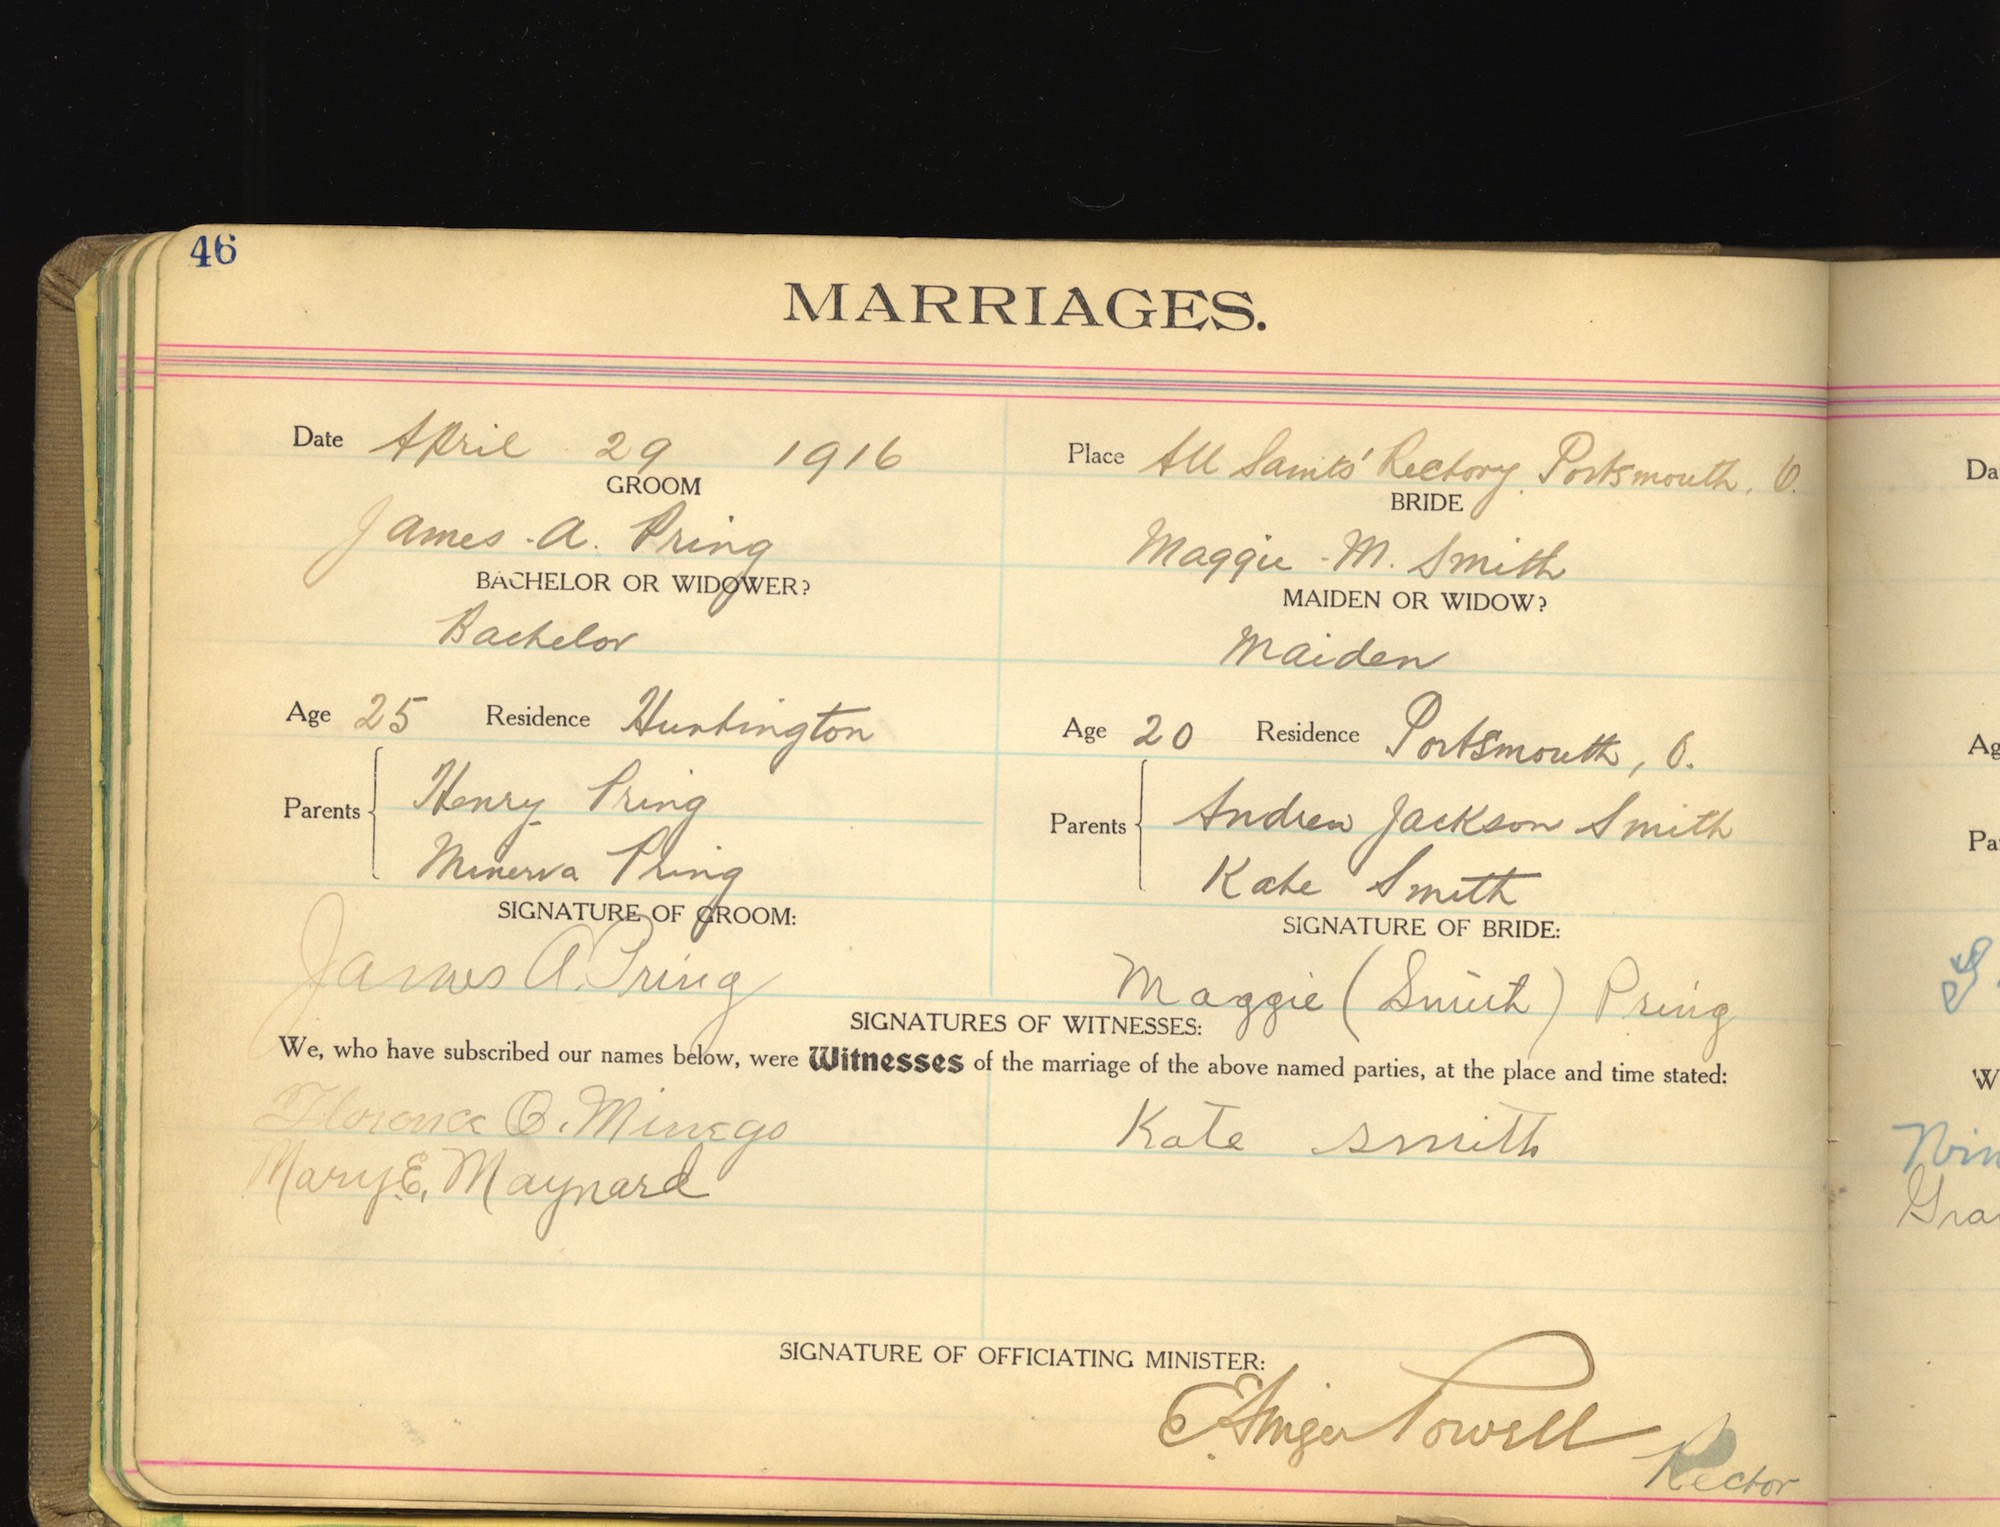 46
MARRIAGES.
Date April 29 1916
GROOM
James A. Pring
BACHELOR OR WIDOWER?
Bachelor
Age 25 Residence Huntington
Parents Henry Pring
Minerva Pring
SIGNATURE OF GROOM:
James A. Pring
Place All Saints' Rectory, Portsmouth, O.
BRIDE
Maggie M. Smith
MAIDEN OR WIDOW?
Maiden
Age 20 Residence Portsmouth, O.
Parents Andrew Jackson Smith
Kate Smith
SIGNATURE OF BRIDE:
Maggie (Smith) Pring
SIGNATURES OF WITNESSES:
We, who have subscribed our names below, were Witnesses of the marriage of the above named parties, at the place and time stated:
Florence
Mary E. Maynard
Kate Smith
SIGNATURE OF OFFICIATING MINISTER:
Powell
Rector
Da
Ag
Pa
W
Gra